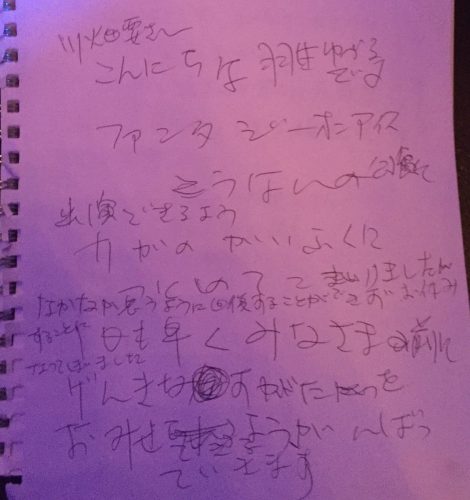 川畑要さん
こんにちは 羽生ゆづる
です
ファンタジーオンアイス
こうはんの公演に
出演できるよう
カがの かいふくに
つとめてまいりましたが
なかなか思うように回復することができず お休み
することに
なってしまいました
一日も早くみなさまの前に
げんきなすがたを
おみせできるようがんばっ
ていきます